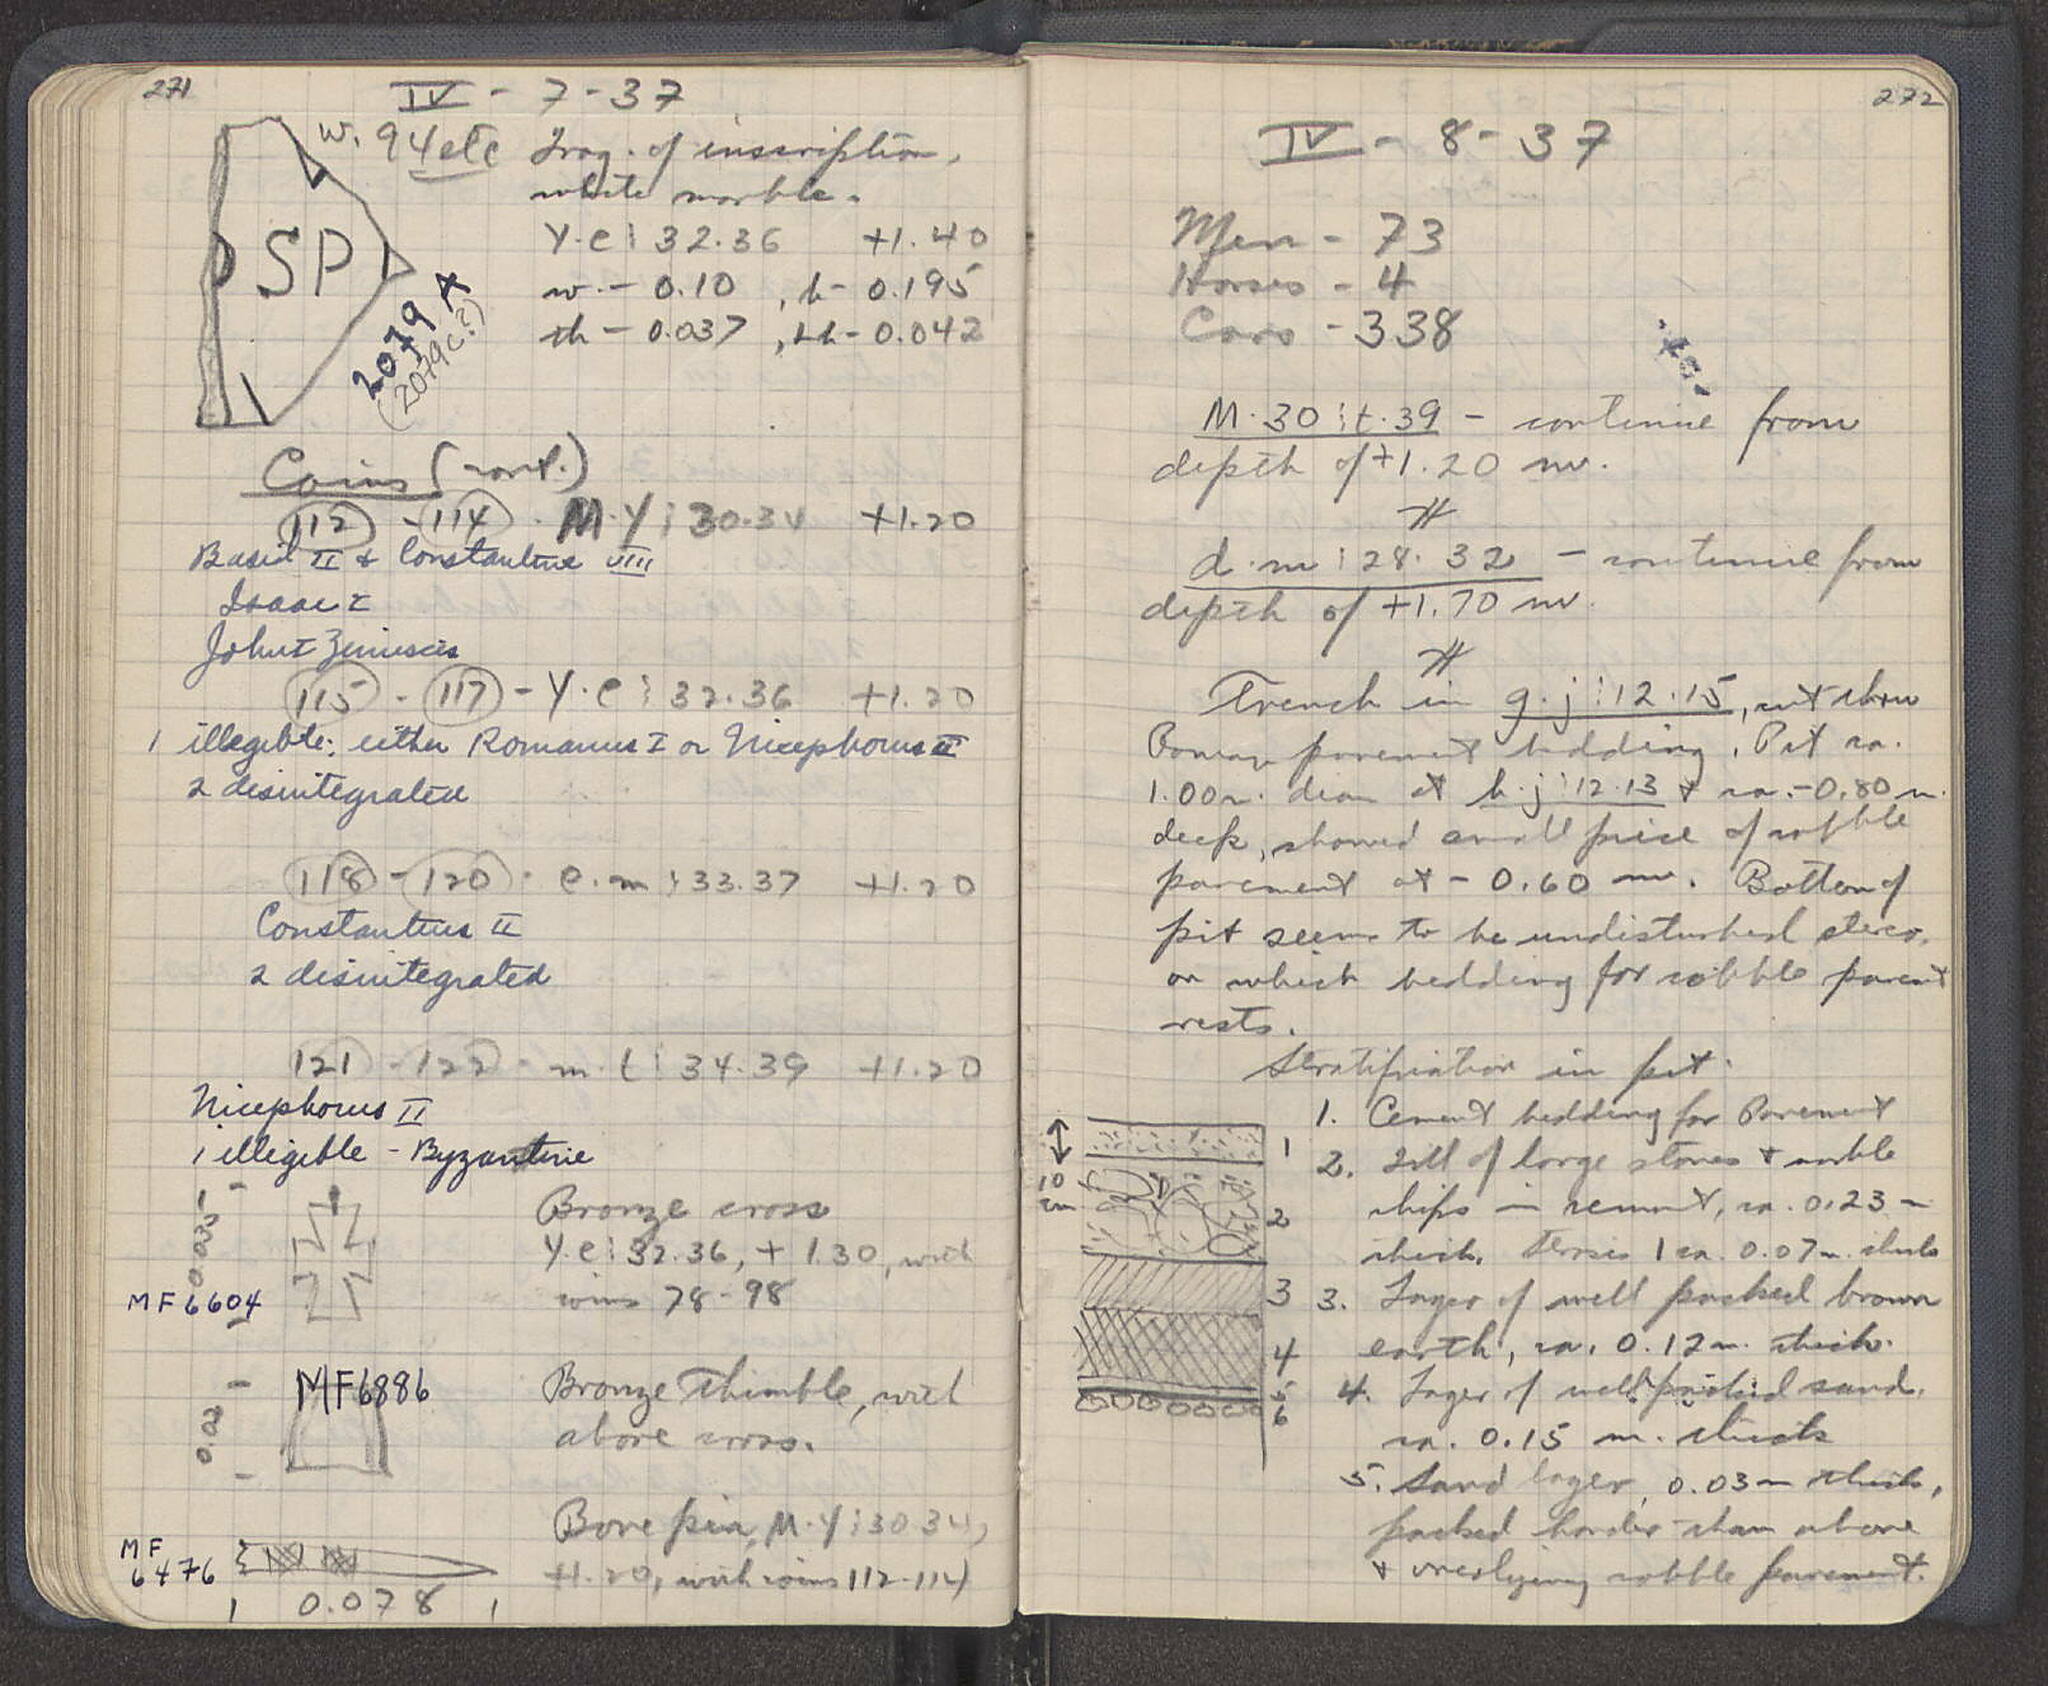 271
IV - 7 - 37
w. 94 etc Frag. of inscription,
white marble.
γ.e : 32.36 +1.40
w. - 0.10 , h - 0.195
th - 0.037 , lh - 0.042
SP
2079 A
(2079c?)
Coins (cont.)
112 - 114 . M.γ : 30.34 +1.20
Basil II & Constantine VIII
Isaac I
John I Zimisces
115 - 117 - γ.e : 32.36 +1.20
1 illegible: either Romanus I or Nicephorus II
2 disintegrated
118 - 120 . e.m : 33.37 +1.20
Constantius II
2 disintegrated
121 - 122 . m.t : 34.39 +1.20
Nicephorus II
1 illegible - Byzantine
Bronze cross
γ.e : 32.36, + 1.30, with
coins 78-98
MF 6604
MF 6886
Bronze thimble, with
above cross.
0.02
Bone pin, M.γ : 30.34,
+1.20, with coins 112-114
MF
6476
0.078
272
IV - 8 - 37
Men - 73
Horses - 4
Cars - 338
M.30 : t.39 - continue from
depth of +1.20 m.
#
d.m : 28.32 - continue from
depth of +1.70 m.
#
Trench in g.j : 12.15, cut thru
Roman pavement bedding. Pit ca.
1.00 m. diam at h.j : 12.13 & ca. -0.80 m.
deep, showed small piece of cobble
pavement at - 0.60 m. Bottom of
pit seems to be undisturbed stereo,
on which bedding for cobble pavemt
rests.
Stratification in pit.
1. Cement bedding for Pavement
2. Fill of large stones & marble
chips in cement, ca. 0.23 m
thick. 1 ca. 0.07 m. thick
3. Layer of well packed brown
earth, ca. 0.12 m. thick.
4. Layer of well packed sand,
ca. 0.15 m. thick
5. Sand layer, 0.03 m thick,
packed harder than above
& overlying cobble pavement.
10
cm
1
2
3
4
5
6